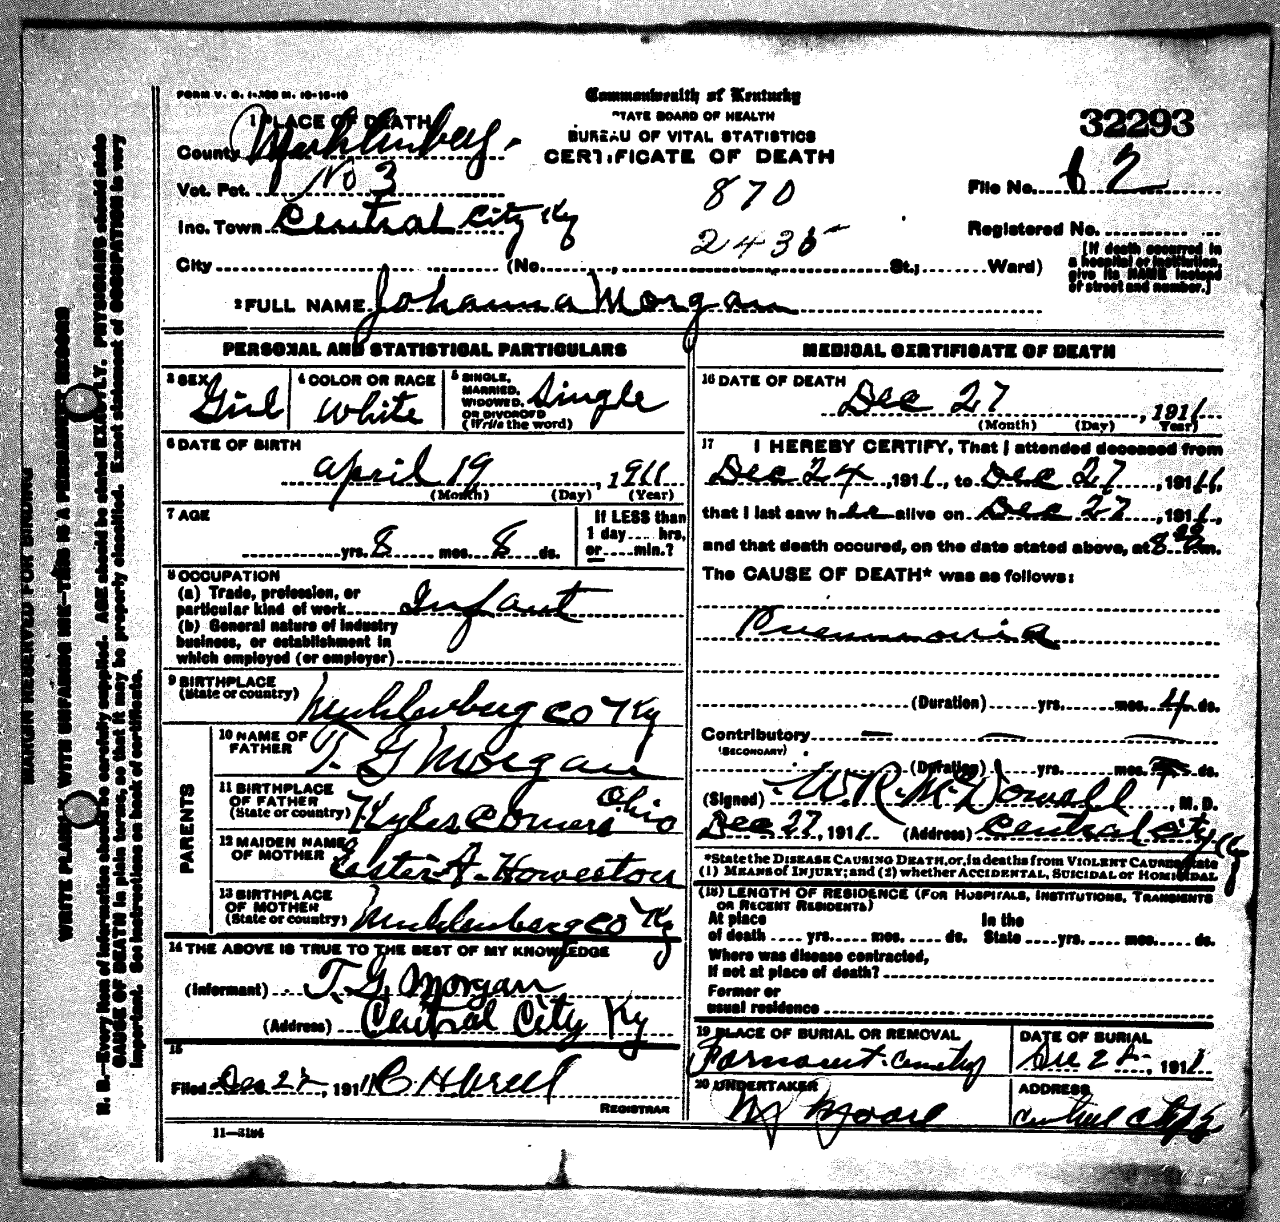 FORM V. S. 1-
Commonwealth of Kentucky
STATE BOARD OF HEALTH
BUREAU OF VITAL STATISTICS
CERTIFICATE OF DEATH
32293
1 PLACE OF DEATH
County Muhlenberg.
Vot. Pct. No 3
870
File No.
Inc. Town Central City Ky
2435
Registered No.
[If death occurred in a hospital or institution, give its NAME instead of street and number.]
City (No. , St.; Ward)
2 FULL NAME Johanna Morgan
PERSONAL AND STATISTICAL PARTICULARS
3 SEX Girl
4 COLOR OR RACE White
5 SINGLE, MARRIED, WIDOWED, OR DIVORCED (Write the word) Single
6 DATE OF BIRTH
April 19, 1911
(Month) (Day) (Year)
7 AGE
yrs. 8 mos. 8 ds.
If LESS than 1 day.... hrs. or.....min.?
8 OCCUPATION
(a) Trade, profession, or
particular kind of work Infant
(b) General nature of industry
business, or establishment in
which employed (or employer)
9 BIRTHPLACE
(State or country) Muhlenberg Co Ky
PARENTS
10 NAME OF FATHER T. G Morgan
11 BIRTHPLACE OF FATHER (State or country) Ohio
12 MAIDEN NAME OF MOTHER Easter A.
13 BIRTHPLACE OF MOTHER (State or country) Muhlenberg Co Ky
14 THE ABOVE IS TRUE TO THE BEST OF MY KNOWLEDGE
(Informant) T. G. Morgan
(Address) Central City Ky
15
Filed Dec 27, 1911
REGISTRAR
11—3184
MEDICAL CERTIFICATE OF DEATH
16 DATE OF DEATH
Dec 27, 1911
(Month) (Day) (Year)
17 I HEREBY CERTIFY, That I attended deceased from
Dec 24, 1911, to Dec 27, 1911,
that I last saw h alive on Dec 27, 1911,
and that death occured, on the date stated above, at 8 m.
The CAUSE OF DEATH* was as follows:
Pneumonia
(Duration) yrs. mos. 4 ds.
Contributory
(SECONDARY)
(Duration) yrs. mos. ds.
(Signed) W. R. McDowell, M. D.
Dec 27, 1911 (Address) Central City Ky
*State the DISEASE CAUSING DEATH, or, in deaths from VIOLENT CAUSES, state
(1) MEANS OF INJURY; and (2) whether ACCIDENTAL, SUICIDAL or HOMICIDAL
(18) LENGTH OF RESIDENCE (FOR HOSPITALS, INSTITUTIONS, TRANSIENTS
OR RECENT RESIDENTS)
At place In the
of death .... yrs. mos. .... ds. State .... yrs. .... mos. ds.
Where was disease contracted,
If not at place of death?
Former or
usual residence
19 PLACE OF BURIAL OR REMOVAL
DATE OF BURIAL
Dec 28, 1911
20 UNDERTAKER
ADDRESS
Moore
Central City
MARGIN RESERVED FOR BINDING
WRITE PLAINLY WITH UNFADING INK—THIS IS A PERMANENT RECORD
N. B.—Every item of information should be carefully supplied. AGE should be stated EXACTLY. PHYSICIANS should state
CAUSE OF DEATH in plain terms, so that it may be properly classified. Exact statement of OCCUPATION is very
important. See instructions on back of certificate.